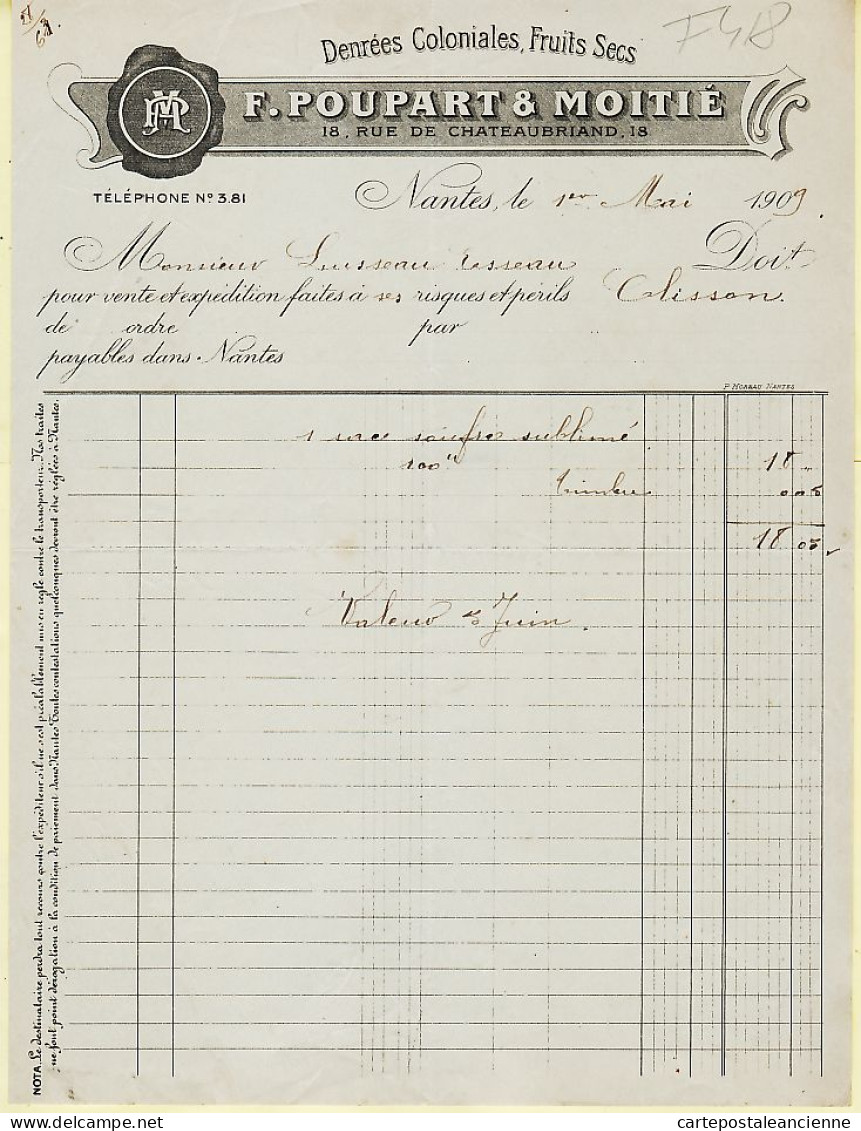 F418
Denrées Coloniales, Fruits Secs
F. POUPART & MOITIÉ
18, RUE DE CHATEAUBRIAND, 18
TÉLÉPHONE Nº 3.81
Nantes, le 1er Mai 1909
Monsieur Doit
pour vente et expédition faites à ses risques et périls Clisson
de ordre par
payables dans Nantes
P. MOREAU NANTES
1 sac soufre sublimé
100 18
timbre 005
18 05
Valeur Juin
NOTA. Le destinataire perdra tout recours contre l'expéditeur s'il ne s'est préalablement mis en règle contre le transporteur. Nos traites
ne font point dérogation à la condition de paiement dans Nantes. Toutes contestations quelconques devront être réglées à Nantes.
cartepostaleancienne